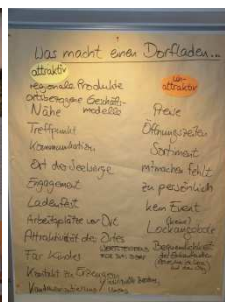 Was macht einen Dorfladen...
attraktiv
un-
attraktiv
regionale Produkte
ortsbezogene Geschäfts-
modelle
Nähe
Treffpunkt
Kommunikation
Ort der Seelsorge
Engagement
Ladenfest
Arbeitsplätze vor Ort
Attraktivität des Ortes
Für Kinder
Kontakt zu Erzeugern
Preise
Öffnungszeiten
Sortiment
mitmachen fehlt
zu persönlich
kein Event
(keine)
Lockangebote
Bequemlichkeit